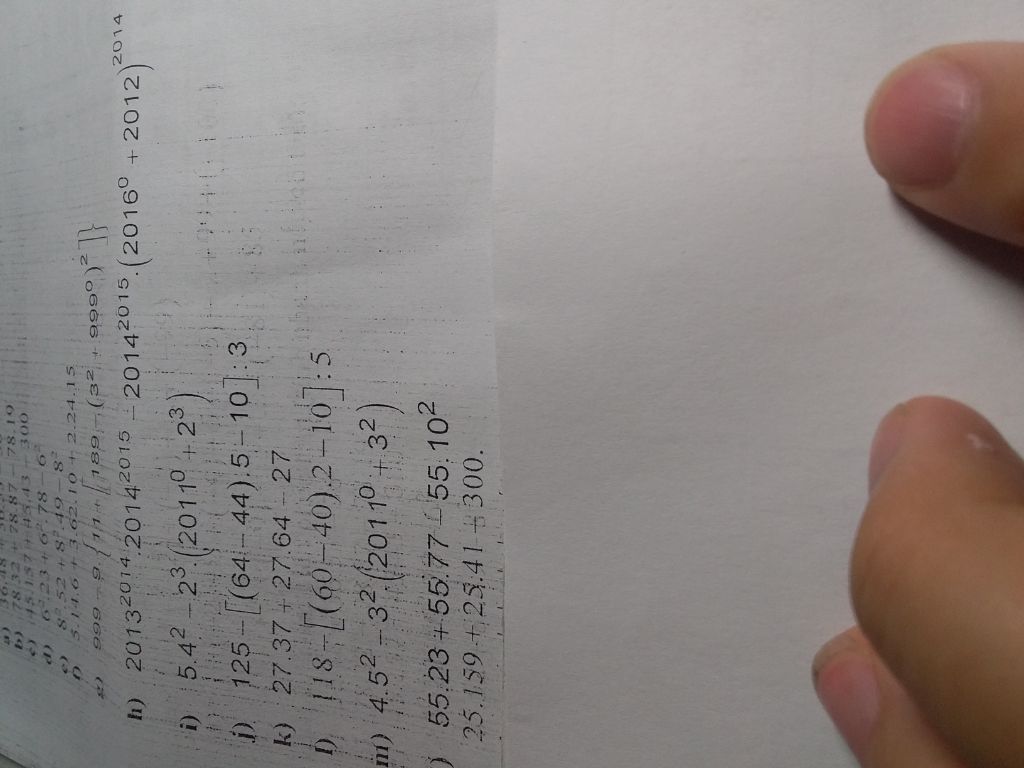 b) 78.32 + 78.87 - 78.19
d) 6².23 + 6².78 - 6²
e) 8².52 + 8².49 - 8²
f) 5.14.6 + 3.62.10 + 2.24.15
g) 999 - 9.{11 + [189 - (3² + 999⁰)²]}
h) 2013²⁰¹⁴.2014²⁰¹⁵ - 2014²⁰¹⁵.(2016⁰ + 2012)²⁰¹⁴
i) 5.4² - 2³.(2011⁰ + 2³)
j) 125 - [(64 - 44).5 - 10] : 3
k) 27.37 + 27.64 - 27
l) 118 - [(60 - 40).2 - 10] : 5
m) 4.5² - 3².(2011⁰ + 3²)
) 55.23 + 55.77 - 55.10²
25.159 + 25.41 + 300.